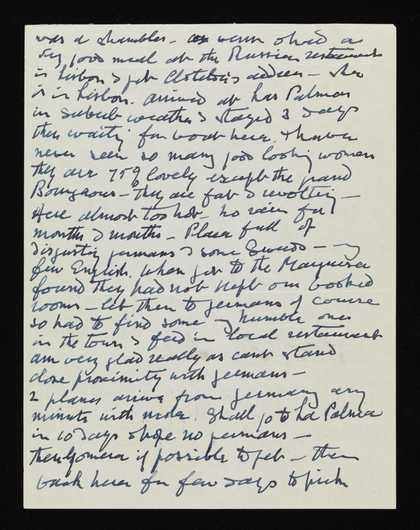 was a shambles – we even had a
very good meal at the Russian restaurant
in Lisbon & got Clotilde's address – she
is in Lisbon. arrived at Las Palmas
in superb weather & stayed 3 days
there waiting for boat here. I have
never seen so many good looking women
they are 75% lovely except the grand
Bourgeois – they are fat & revolting –
Here almost too hot. no rain for
months & months – Place full of
disgusting germans & some Swedes –
few English. when got to the Marquesa
found they had not kept our booked
rooms – let them to germans of course
so had to find some humble ones
in the town & feed in local restaurant
am very glad really as cant stand
close proximity with germans –
2 planes arrive from germany any
minute with more. Shall go to La Palma
in 10 days & hope no germans –
then Gomera if possible to get – then
back here for few days to pick